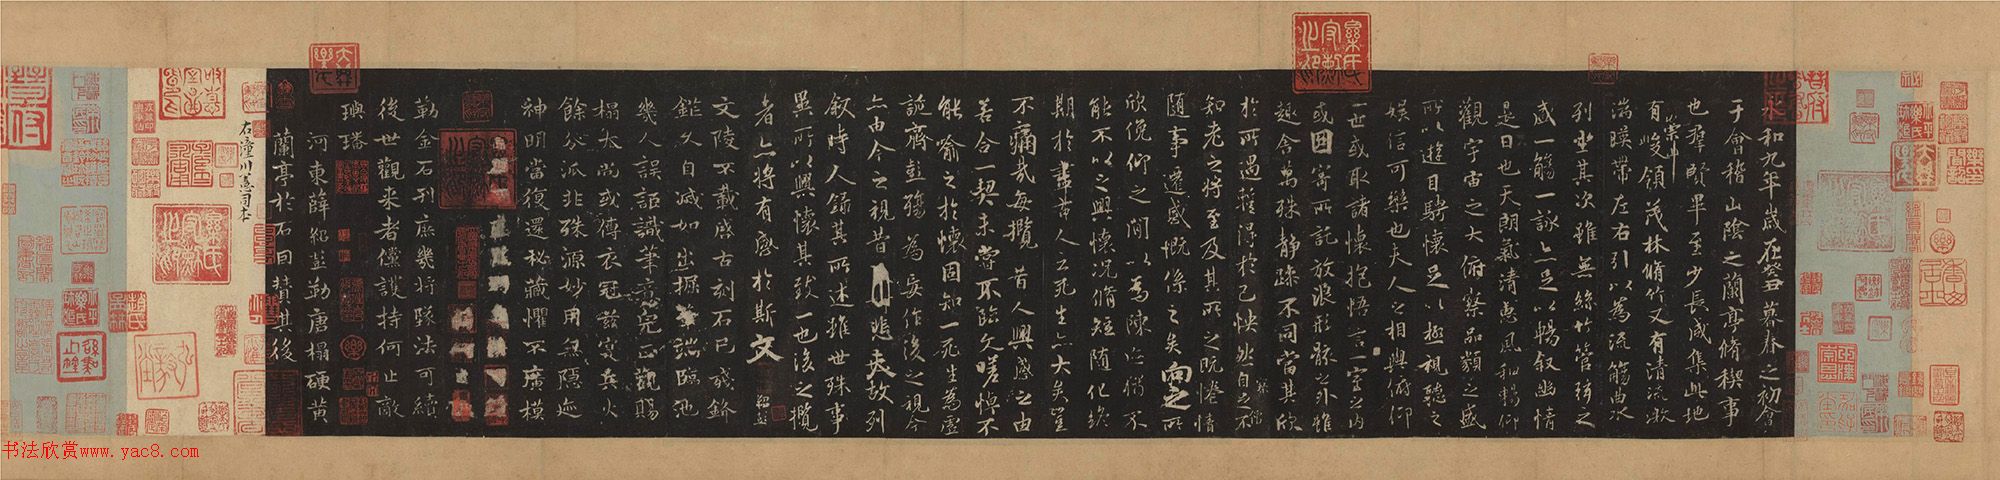 永和九年歲在癸丑暮春之初會
于會稽山陰之蘭亭脩稧事
也群賢畢至少長咸集此地
有崇山峻領茂林脩竹又有清流激
湍暎帶左右引以為流觴曲水
列坐其次雖無絲竹管弦之
盛一觴一詠亦足以暢敘幽情
是日也天朗氣清惠風和暢仰
觀宇宙之大俯察品類之盛
所以遊目騁懷足以極視聽之
娛信可樂也夫人之相與俯仰
一世或取諸懷抱悟言一室之內
或因寄所託放浪形骸之外雖
趣舍萬殊靜躁不同當其欣
於所遇蹔得於己怏然自足不
知老之將至及其所之既惓情
隨事遷感慨係之矣向之所
欣俛仰之閒以為陳迹猶不
能不以之興懷況脩短隨化終
期於盡古人云死生亦大矣豈
不痛哉每攬昔人興感之由
若合一契未嘗不臨文嗟悼不
能喻之於懷固知一死生為虛
誕齊彭殤為妄作後之視今
亦由今之視昔悲夫故列
敘時人錄其所述雖世殊事
異所以興懷其致一也後之攬
者亦將有感於斯文
紹彭
文陵不載啓古刻石已殘缺
鑑久自滅如出掘筆端臨池
幾人誤詔識筆意完正觀賜
榻本尚或傳衣冠茲寔兵火
餘分派非殊源妙用無隱迹
神明當復還秘藏懼不廣模
勒金石刊庶幾將墜法可續
後世觀來者儻護持何止敵
璵璠
河東薛紹彭勒唐榻硬黃
蘭亭於石回贊其後
右潼川憲司本
书法欣赏www.yac8.com